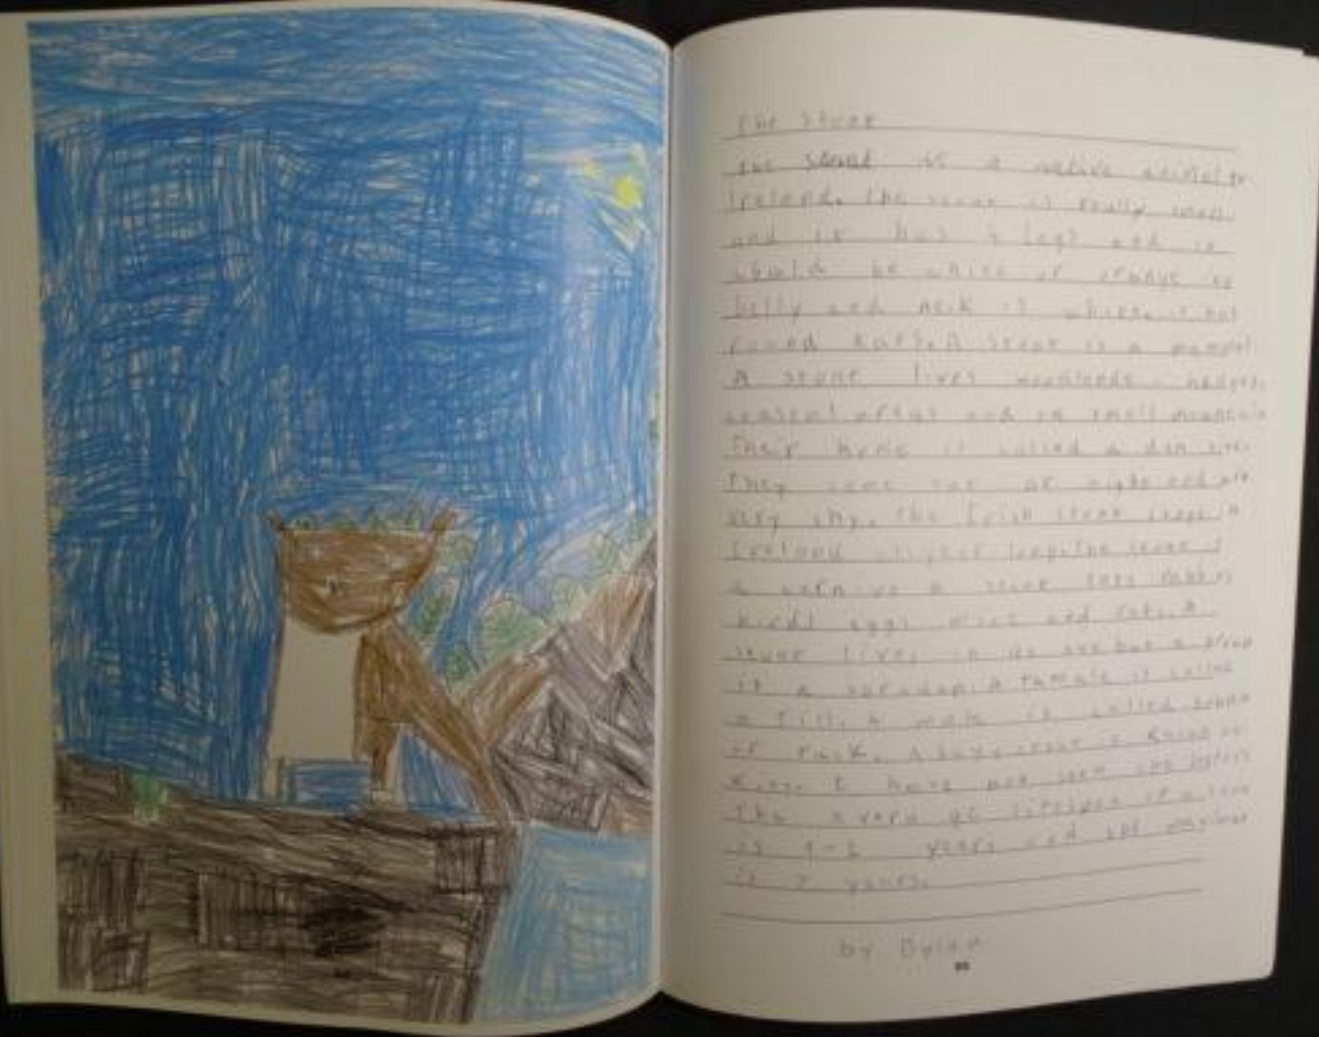 The Stoat
The stoat is a native animal to
Ireland. The stoat is really small
and it has 4 legs and it
could be white or orange its
belly and neck is white. it has
round ears. A stoat is a mammel.
A stoat lives woodlands, hedges,
coascal areas and on small mountain
Their home is called a den
They come out at night and are
very shy. The Irish stoat in
Ireland
a stoat eats rabbits
birds eggs mice and rats. A
stoat lives on its own but a group
is a A female is called
a Jill. A male is called
or A baby stoat is known as
Kits. I have not seen one before
The average lifespan of a stoat
is 1-2 years and the maximum
is 7 years.
by Dylan